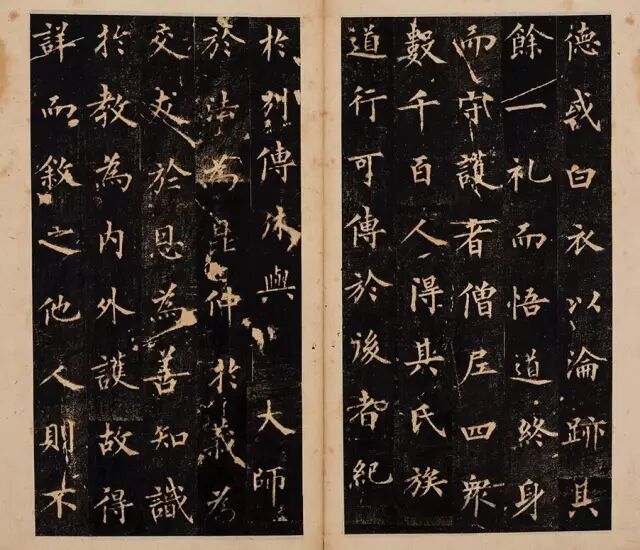 德或白衣以淪跡其
餘一礼而悟道終身
而守護者僧尼四衆
數千百人得其氏族
道行可傳於後者紀
於別傳休與 大師
於法為昆仲於義為
交友於恩為善知識
於教為內外護故得
詳而敘之他人則不